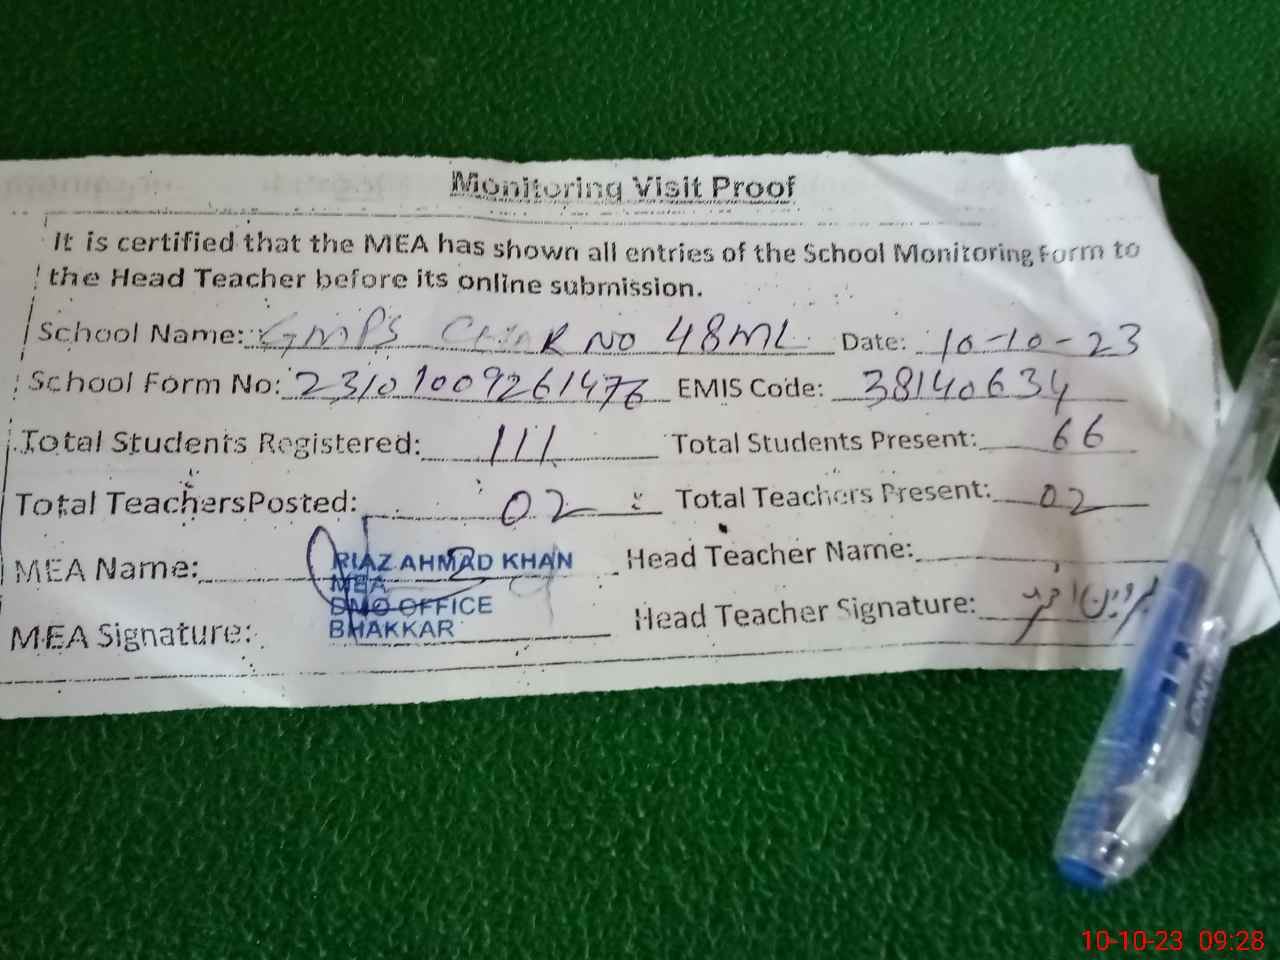 Monitoring Visit Proof
It is certified that the MEA has shown all entries of the School Monitoring Form to
the Head Teacher before its online submission.
School Name: GMPS CHAK NO 48ML Date: 10-10-23
School Form No: 23101009261476 EMIS Code: 38140634
Total Students Registered: 111 Total Students Present: 66
Total TeachersPosted: 02 Total Teachers Present: 02
MEA Name: RIAZ AHMAD KHAN Head Teacher Name:
MEA
DMO OFFICE
MEA Signature: BHAKKAR Head Teacher Signature:
10-10-23 09:28